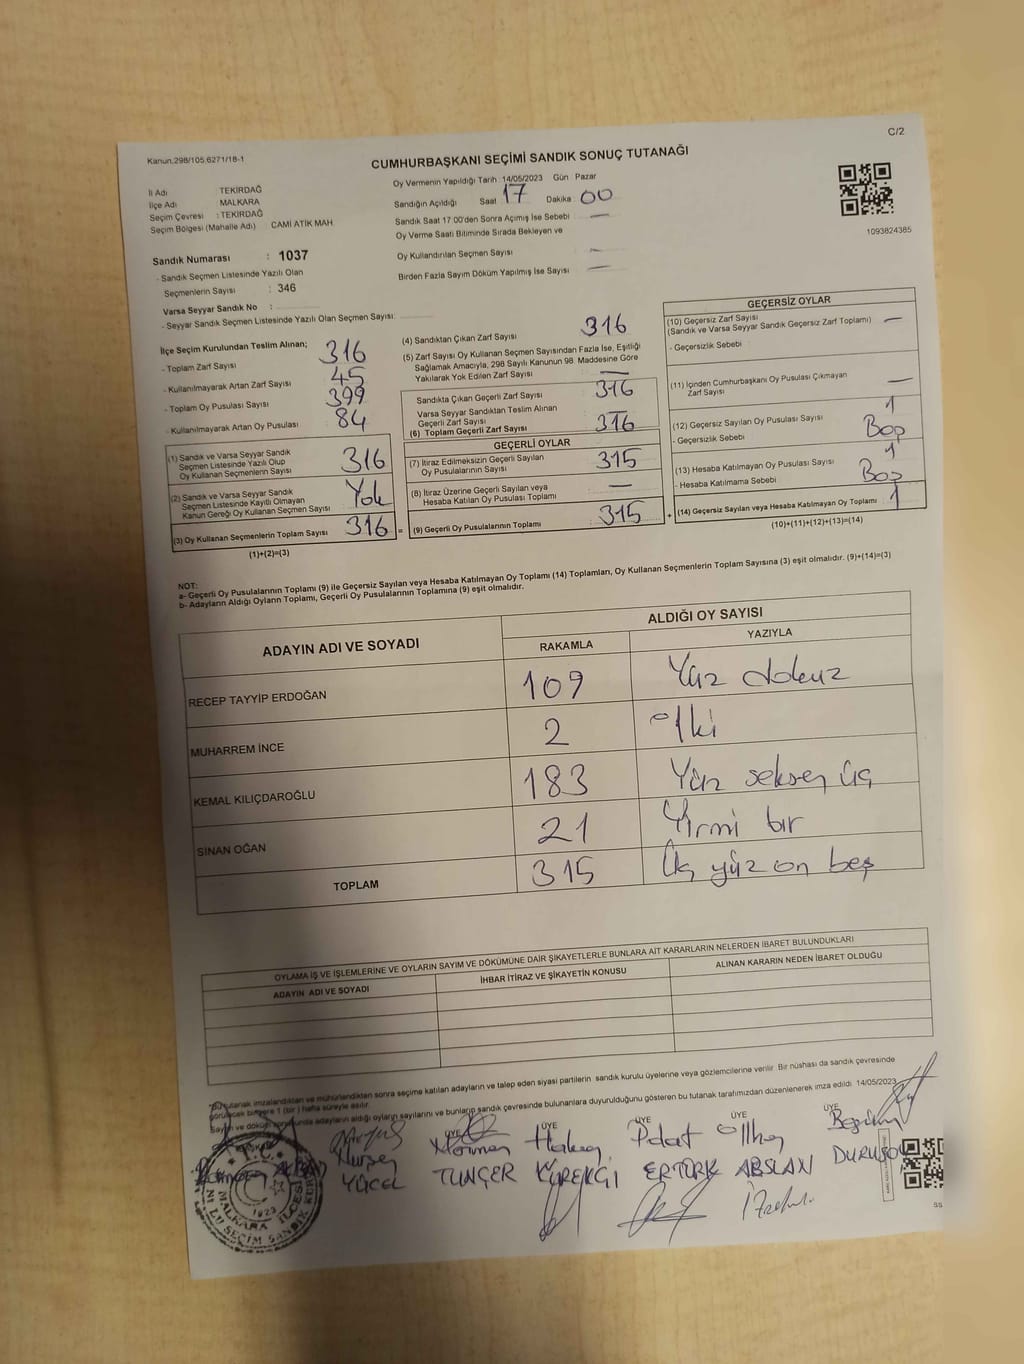 C/2
Kanun.298/105,6271/18-1
CUMHURBAŞKANI SEÇİMİ SANDIK SONUÇ TUTANAĞI
İl Adı TEKİRDAĞ
İlçe Adı MALKARA
Seçim Çevresi : TEKİRDAĞ
Seçim Bölgesi (Mahalle Adı) CAMİ ATİK MAH
Sandık Numarası : 1037
- Sandık Seçmen Listesinde Yazılı Olan
Seçmenlerin Sayısı : 346
Varsa Seyyar Sandık No :
- Seyyar Sandık Seçmen Listesinde Yazılı Olan Seçmen Sayısı:
Oy Vermenin Yapıldığı Tarih : 14/05/2023 Gün Pazar
Sandığın Açıldığı Saat 17 Dakika 00
Sandık Saat 17 00'den Sonra Açımış İse Sebebi —
Oy Verme Saati Bitiminde Sırada Bekleyen ve
Oy Kullandırılan Seçmen Sayısı —
Birden Fazla Sayım Döküm Yapılmış İse Sayısı —
1093824385
İlçe Seçim Kurulundan Teslim Alınan;
- Toplam Zarf Sayısı 316
- Kullanılmayarak Artan Zarf Sayısı 45
- Toplam Oy Pusulası Sayısı 399
- Kullanılmayarak Artan Oy Pusulası 84
(1) Sandık ve Varsa Seyyar Sandık
Seçmen Listesinde Yazılı Olup
Oy Kullanan Seçmenlerin Sayısı 316
(2) Sandık ve Varsa Seyyar Sandık
Seçmen Listesinde Kayıtlı Olmayan
Kanun Gereği Oy Kullanan Seçmen Sayısı Yok
(3) Oy Kullanan Seçmenlerin Toplam Sayısı 316 =
(1)+(2)=(3)
(4) Sandıktan Çıkan Zarf Sayısı 316
(5) Zarf Sayısı Oy Kullanan Seçmen Sayısından Fazla İse, Eşitliği
Sağlamak Amacıyla, 298 Sayılı Kanunun 98. Maddesine Göre
Yakılarak Yok Edilen Zarf Sayısı —
Sandıkta Çıkan Geçerli Zarf Sayısı 316
Varsa Seyyar Sandıktan Teslim Alınan
Geçerli Zarf Sayısı —
(6) Toplam Geçerli Zarf Sayısı 316
GEÇERLİ OYLAR
(7) İtiraz Edilmeksizin Geçerli Sayılan
Oy Pusulalarının Sayısı 315
(8) İtiraz Üzerine Geçerli Sayılan veya
Hesaba Katılan Oy Pusulası Toplamı —
(9) Geçerli Oy Pusulalarının Toplamı 315 +
GEÇERSİZ OYLAR
(10) Geçersiz Zarf Sayısı
(Sandık ve Varsa Seyyar Sandık Geçersiz Zarf Toplamı) —
- Geçersizlik Sebebi
(11) İçinden Cumhurbaşkanı Oy Pusulası Çıkmayan
Zarf Sayısı —
(12) Geçersiz Sayılan Oy Pusulası Sayısı 1
- Geçersizlik Sebebi Boş
(13) Hesaba Katılmayan Oy Pusulası Sayısı 1
- Hesaba Katılmama Sebebi Boş
(14) Geçersiz Sayılan veya Hesaba Katılmayan Oy Toplamı 1
(10)+(11)+(12)+(13)=(14)
NOT:
a- Geçerli Oy Pusulalarının Toplamı (9) ile Geçersiz Sayılan veya Hesaba Katılmayan Oy Toplamı (14) Toplamları, Oy Kullanan Seçmenlerin Toplam Sayısına (3) eşit olmalıdır. (9)+(14)=(3)
b- Adayların Aldığı Oyların Toplamı, Geçerli Oy Pusulalarının Toplamına (9) eşit olmalıdır.
ADAYIN ADI VE SOYADI ALDIĞI OY SAYISI
RAKAMLA YAZIYLA
RECEP TAYYİP ERDOĞAN 109 Yüz dokuz
MUHARREM İNCE 2 İki
KEMAL KILIÇDAROĞLU 183 Yüz seksen üç
SİNAN OĞAN 21 Yirmi bir
TOPLAM 315 Üç yüz on beş
OYLAMA İŞ VE İŞLEMLERİNE VE OYLARIN SAYIM VE DÖKÜMÜNE DAİR ŞİKAYETLERLE BUNLARA AİT KARARLARIN NELERDEN İBARET BULUNDUKLARI
ADAYIN ADI VE SOYADI İHBAR İTİRAZ VE ŞİKAYETİN KONUSU ALINAN KARARIN NEDEN İBARET OLDUĞU
*Bu tutanak imzalandıktan ve mühürlendikten sonra seçime katılan adayların ve talep eden siyasi partilerin sandık kurulu üyelerine veya gözlemcilerine verilir. Bir nüshası da sandık çevresinde
görülecek bir yere 1 (bir) hafta süreyle asılır.
Sayım ve döküm sonucunda adayların aldığı oyların sayılarını ve bunların sandık çevresinde bulunanlara duyurulduğunu gösteren bu tutanak tarafımızdan düzenlenerek imza edildi. 14/05/2023
ÜYE ÜYE ÜYE ÜYE ÜYE
Nurşen Hakan Polat İlkay
YÜCEL TUNÇER KÜREKÇİ ERTÜRK ABSLAN DURUSOY
T.C.
MALKARA İLÇESİ
1923
SEÇİM SANDIK